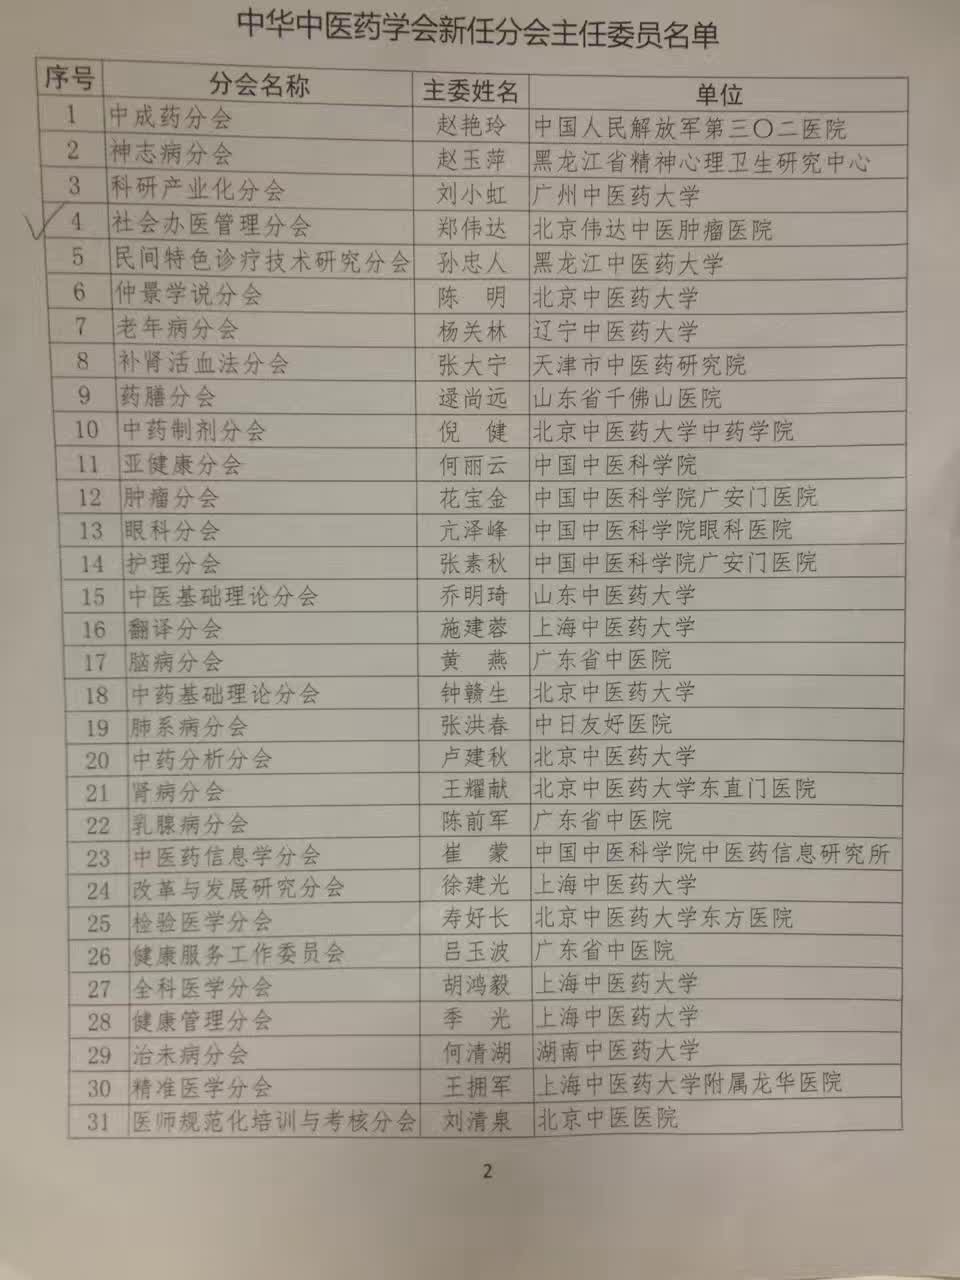 中华中医药学会新任分会主任委员名单
序号 分会名称 主委姓名 单位
1 中成药分会 赵艳玲 中国人民解放军第三〇二医院
2 神志病分会 赵玉萍 黑龙江省精神心理卫生研究中心
3 科研产业化分会 刘小虹 广州中医药大学
4 社会办医管理分会 郑伟达 北京伟达中医肿瘤医院
5 民间特色诊疗技术研究分会 孙忠人 黑龙江中医药大学
6 仲景学说分会 陈 明 北京中医药大学
7 老年病分会 杨关林 辽宁中医药大学
8 补肾活血法分会 张大宁 天津市中医药研究院
9 药膳分会 逯尚远 山东省千佛山医院
10 中药制剂分会 倪 健 北京中医药大学中药学院
11 亚健康分会 何丽云 中国中医科学院
12 肿瘤分会 花宝金 中国中医科学院广安门医院
13 眼科分会 亢泽峰 中国中医科学院眼科医院
14 护理分会 张素秋 中国中医科学院广安门医院
15 中医基础理论分会 乔明琦 山东中医药大学
16 翻译分会 施建蓉 上海中医药大学
17 脑病分会 黄 燕 广东省中医院
18 中药基础理论分会 钟赣生 北京中医药大学
19 肺系病分会 张洪春 中日友好医院
20 中药分析分会 卢建秋 北京中医药大学
21 肾病分会 王耀献 北京中医药大学东直门医院
22 乳腺病分会 陈前军 广东省中医院
23 中医药信息学分会 崔 蒙 中国中医科学院中医药信息研究所
24 改革与发展研究分会 徐建光 上海中医药大学
25 检验医学分会 寿好长 北京中医药大学东方医院
26 健康服务工作委员会 吕玉波 广东省中医院
27 全科医学分会 胡鸿毅 上海中医药大学
28 健康管理分会 季 光 上海中医药大学
29 治未病分会 何清湖 湖南中医药大学
30 精准医学分会 王拥军 上海中医药大学附属龙华医院
31 医师规范化培训与考核分会 刘清泉 北京中医医院
2